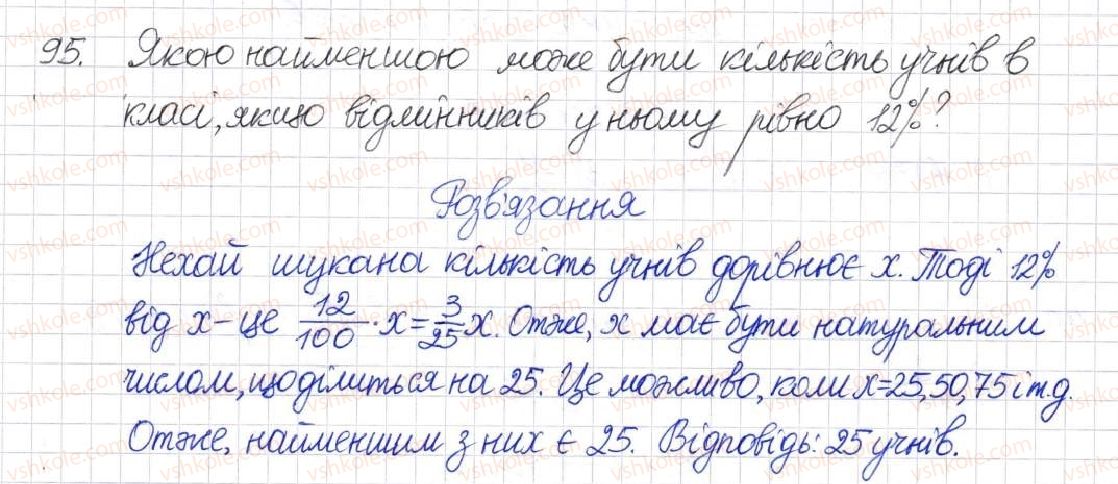 95. Якою найменшою може бути кількість учнів в
класі, якщо відмінників у ньому рівно 12%?
Розв'язання
Нехай шукана кількість учнів дорівнює x. Тоді 12%
від x - це 12/100 · x = 3/25 x. Отже, x має бути натуральним
числом, що ділиться на 25. Це можливо, коли x=25, 50, 75 і т.д.
Отже, найменшим з них є 25. Відповідь: 25 учнів.